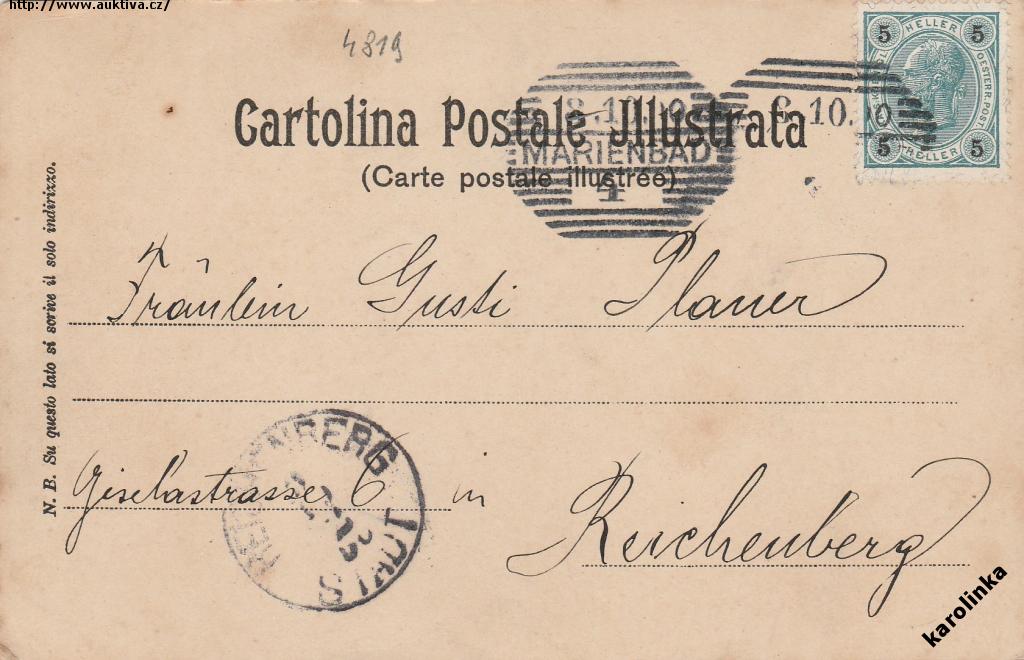 http://www.auktiva.cz/
4819
5 HELLER 5
OESTERR. POST
5 HELLER 5
Cartolina Postale Illustrata
(Carte postale illustrée)
MARIENBAD
1
6.10.00
N. B. Su questo lato si scrive il solo indirizzo.
Fräulein Gusti Planer
Giselastrasse 6 in
Reichenberg
REICHENBERG STADT
karolinka